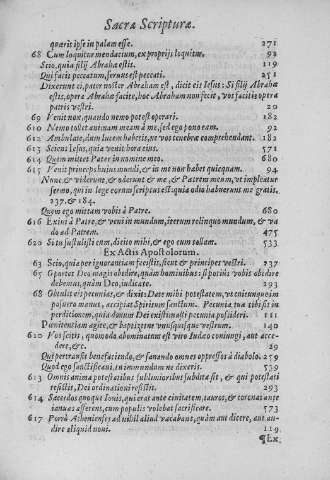 Sacræ Scripturæ.
quærit ipse in palam esse. 271
68 Cum loquitur mendacium, ex propriis loquitur. 92
Scio, quia filij Abrahæ estis. 119
Qui facit peccatum, seruus est peccati. 251
Dixerunt ei, pater noster Abraham est, dicit eis Iesus: Si filij Abrahæ
estis, opera Abrahæ facite, hoc Abraham non fecit, vos facitis opera
patris vestri. 20
69 Venit nox, quando nemo potest operari. 182
610 Nemo tollet animam meam à me, sed ego pono eam. 92
612 Ambulate, dum lucem habetis, ne vos tenebræ comprehendant. 182
613 Sciens Iesus, quia venit hora eius. 571
614 Quem mittet Pater in nomine meo. 680
615 Venit princeps huius mundi, & in me non habet quicquam. 94
Nunc, & viderunt, & oderunt & me, & Patrem meum, vt impleatur
sermo, qui in lege eorum scriptus est: quia odio habuerunt me gratis.
237. & 184.
Quem ego mittam vobis à Patre. 680
616 Exiui à Patre, & veni in mundum, iterum relinquo mundum, & va
do ad Patrem. 475
620 Si tu sustulisti eum, dicito mihi, & ego eum tollam. 533
Ex Actis Apostolorum.
63 Scio, quia per ignorantiam fecistis, sicut & principes vestri. 237
65 Oportet Deo magis obedire, quàm hominibus: si potiùs vobis obedire
debemus, quàm Deo, iudicate. 293
68 Obtulit eis pecunias, & dixit: Date mihi potestatem, vt cuicunque im
posuero manus, accipiat Spiritum sanctum. Pecunia tua tibi sit in
perditionem, quia donum Dei existimasti pecunia possideri. 111
Pœnitentiam agite, & baptizetur vnusquisque vestrum. 140
620 Vos scitis, quomodo abominatum est viro Iudæo coniungi, aut acce
dere, &c. 29
Qui pertransiit benefaciendo, & sanando omnes oppressos à diabolo. 259
Quod ego sanctificaui, tu immundum ne dixeris. 539
613 Omnis anima potestatibus sublimioribus subdita sit, & qui potestati
resistit, Dei ordinationi resistit. 293
614 Sacerdos quoque Iouis, qui erat ante ciuitatem, tauros, & coronas ante
ianuas afferens, cum populis volebat sacrificare. 573
617 Porrò Athenienses ad nihil aliud vacabant, quàm aut dicere, aut au-
dire aliquid noui. 119
¶Ex